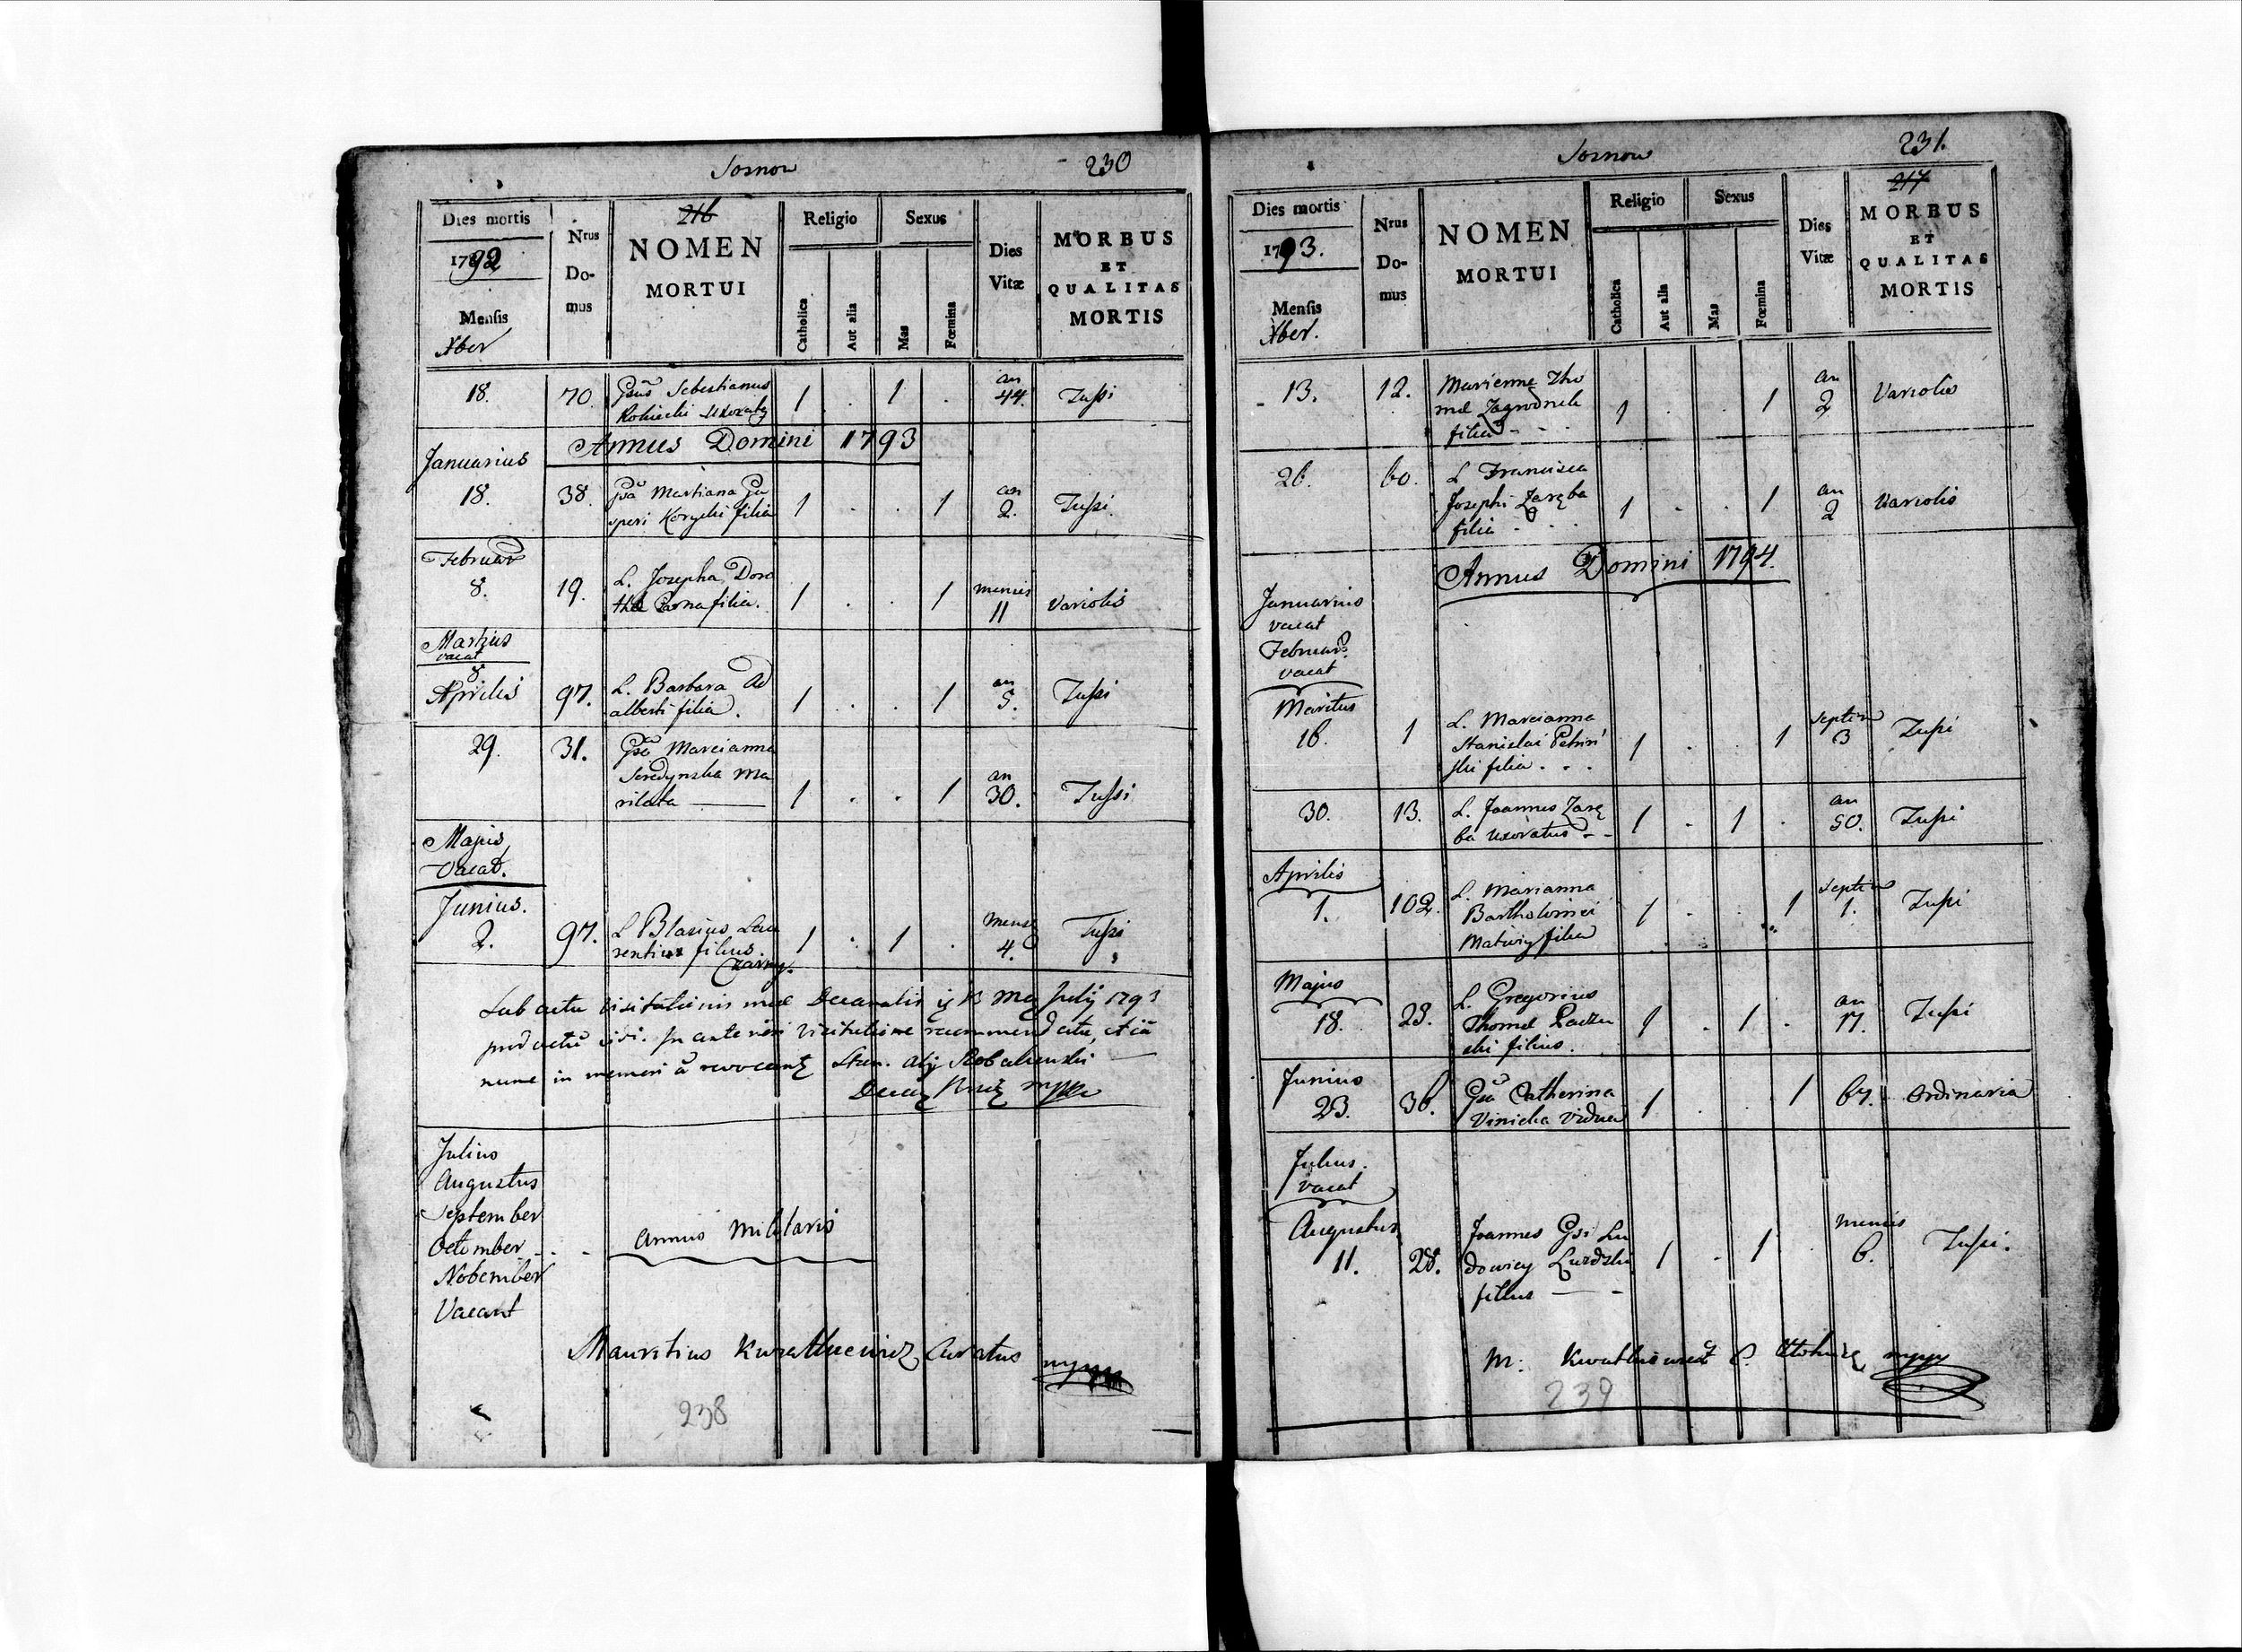 Sosnow
230
Dies mortis
1792
Mensis
Xber
Nrus
Do-
mus
216
NOMEN
MORTUI
Religio
Catholica
Aut alia
Sexus
Mas
Fœmina
Dies
Vitæ
MORBUS
ET
QUALITAS
MORTIS
18. 70. Gsus Sebestianus 1 . 1 . an 44. Tussi
Annus Domini 1793
Januarius
18. 38. Gsa Martiana Ga
speri filia 1 . . 1 an 2. Tussi
Februar
8. 19. L. Josepha Doro
thea filia. 1 . . 1 menses 11 Variolis
Martius
vacat
8
Aprilis 97. L. Barbara Ad
alberti filia. 1 . . 1 an 5. Tussi
29. 31. Gsa Marcianna
Seredynska Ma
ritata 1 . . 1 an 30. Tussi
Majus
Vacat.
Junius.
2. 97. L Blasius Lau
rentius filius. 1 . 1 . mens 4. Tussi
Czarny.
Sub actu visitationis meæ Decanalis July 1793
visitatione
nunc in
Julius
Augustus
September
October
November
Vacant
annus Militaris
Mauritius Curatus mpp
238
Sosnow
231.
217
Dies mortis
1793.
Mensis
Xber.
Nrus
Do-
mus
NOMEN
MORTUI
Religio
Catholica
Aut alia
Sexus
Mas
Fœmina
Dies
Vitæ
MORBUS
ET
QUALITAS
MORTIS
13. 12. Marienna Tho
mæ Zagrodnik
filia 1 . . 1 an 2 Variolis
26. 60. L Francisca
Josephi Zaręba
filia 1 . . 1 an 2 Variolis
Annus Domini 1794.
Januarius
vacat
Februar
vacat
Martius
16. 1 L. Marcianna
Stanislai Petrin
ski filia . . . 1 . . 1 Septim 3 Tussi
30. 13. L. Joannes Zarę
ba uxoratus 1 . 1 . an 50. Tussi
Aprilis
1. 102. L. Marianna
Bartholomei
Matwiy filia 1 . . 1 Septim 1. Tussi
Majus
18. 28. L. Gregorius
Thomæ
filius. 1 . 1 . an 17. Tussi
Junius
23. 36. Gsa Catherina
Vinicka Vidua 1 . . 1 67. Ordinaria
Julius.
vacat
Augustus
11. 28. Joannes Gsi Lu
dowicy
filius 1 . 1 . menses 6. Tussi.
M: mpp
239